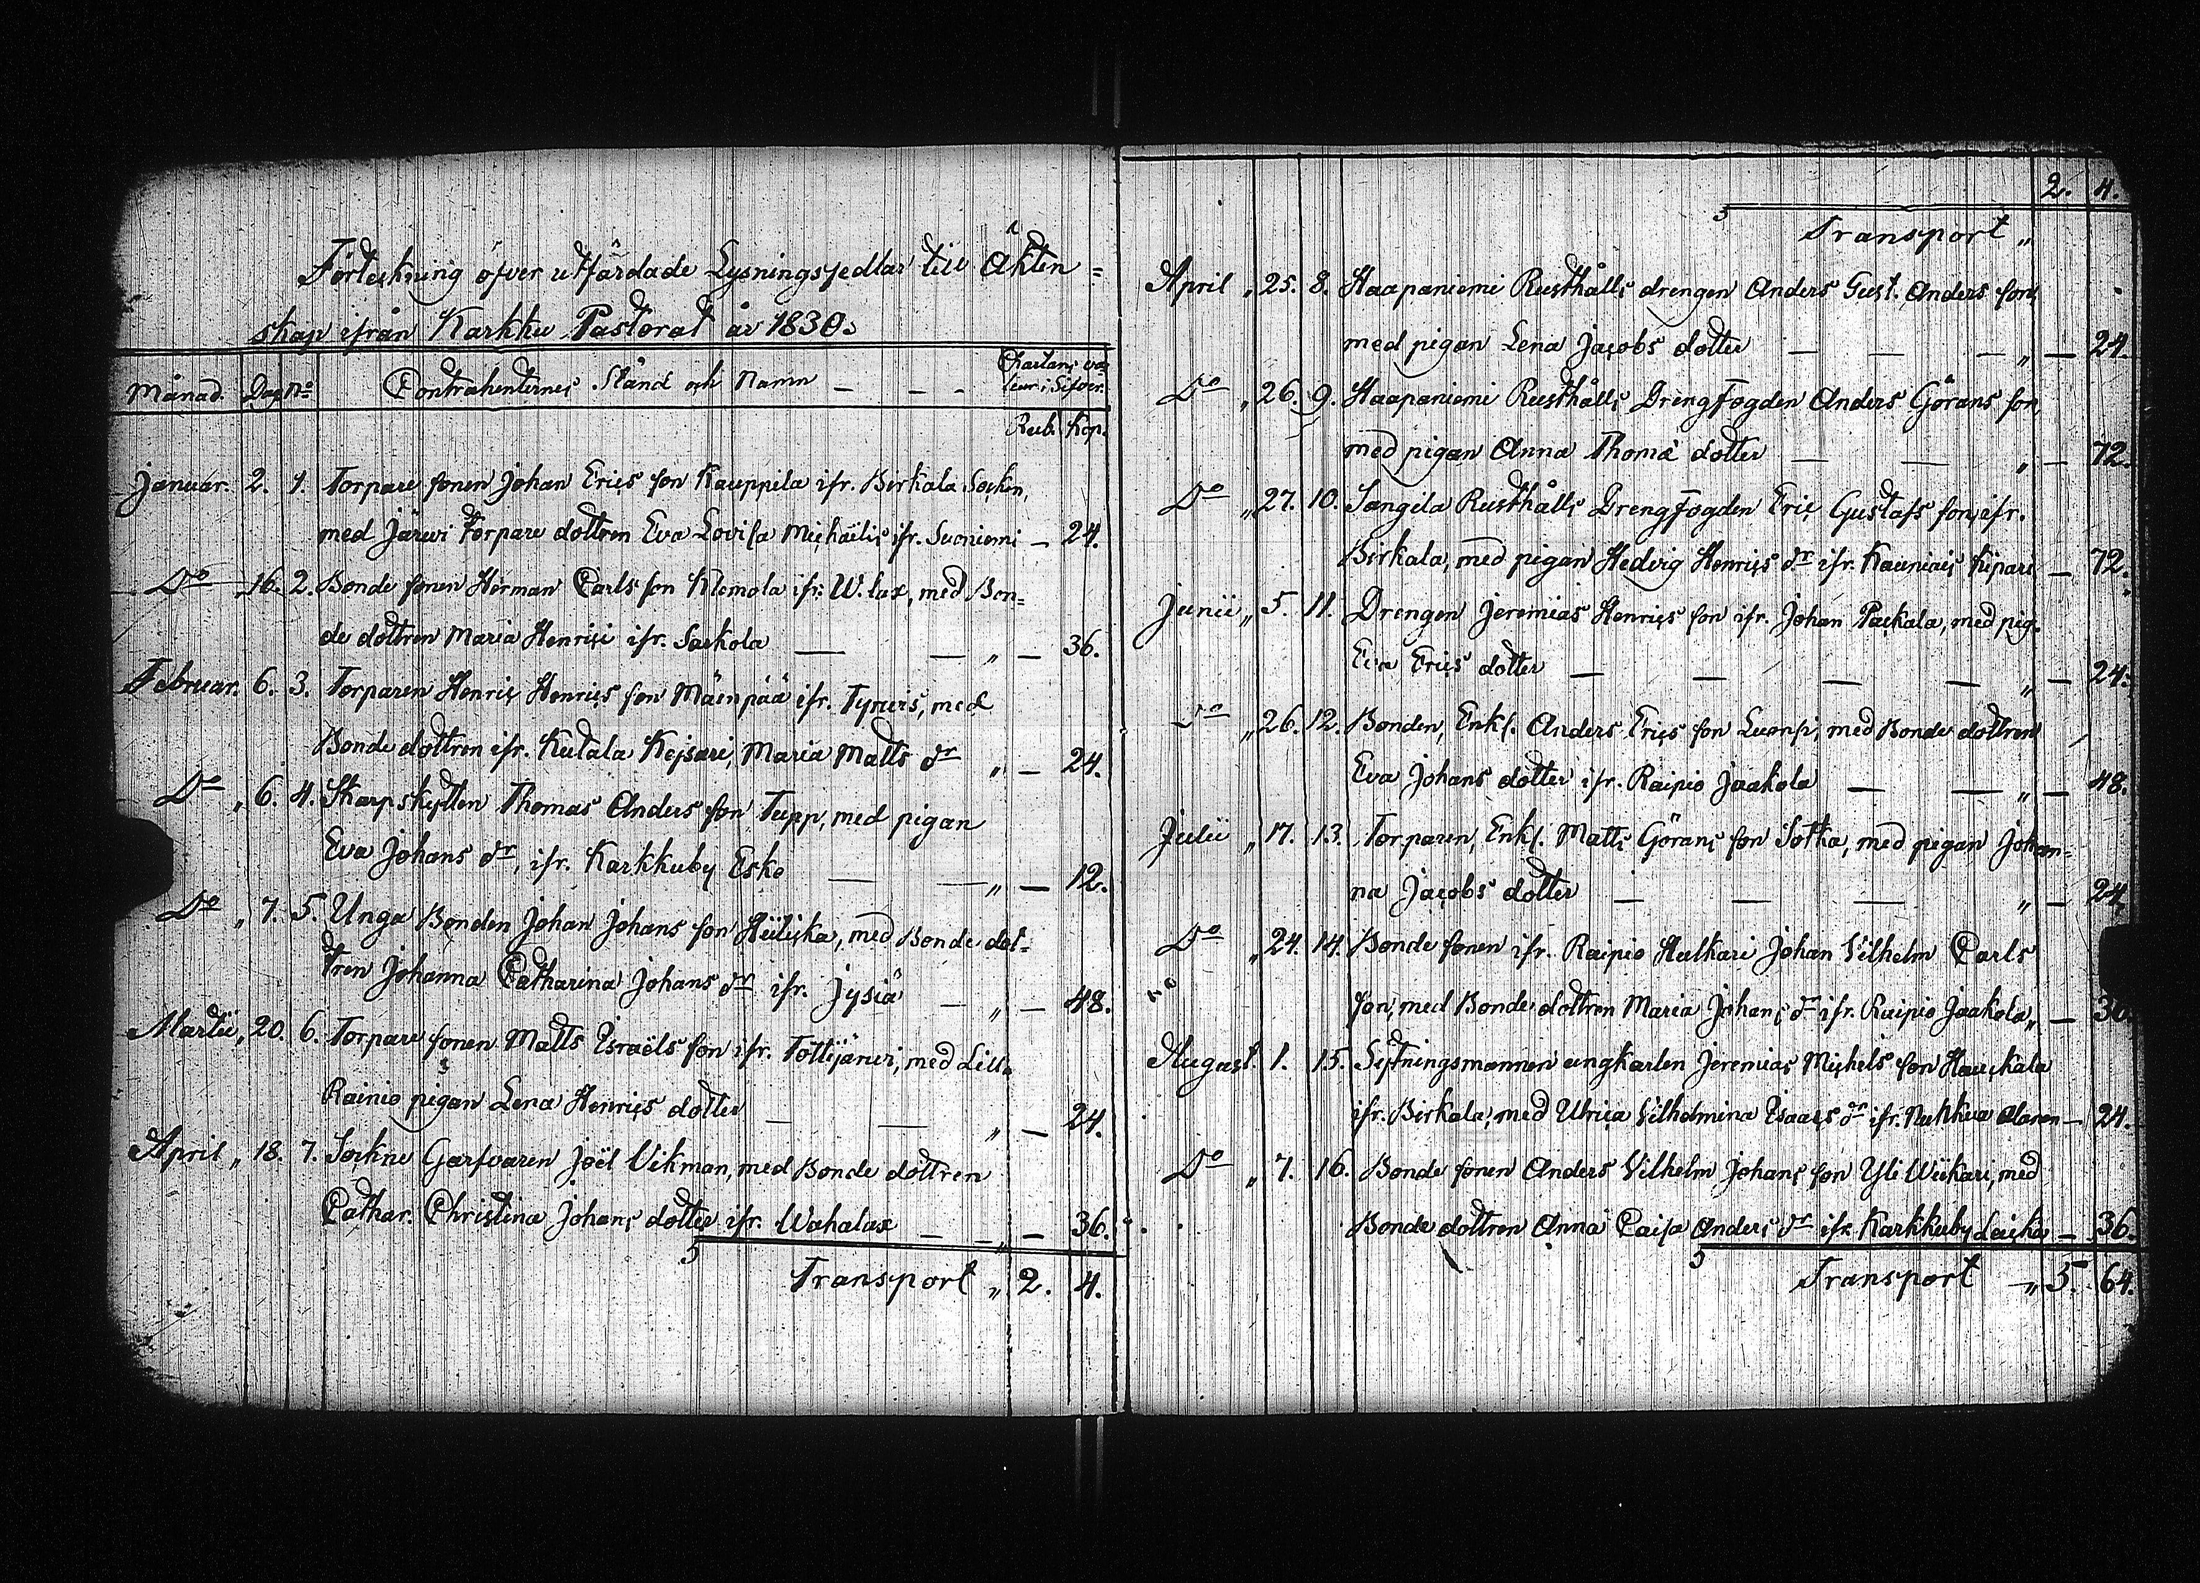 Förteckning öfver utfärdade Lysningssedlar till Äkten=
skap ifrån Karkku Pastorat år 1830.
Månad. Dag No Contrahenternes Stånd och Namn — — - Chartans va=
leur i Silfver.
Rub. Kop.
Januar. 2. 1. Torpare sonen Johan Erics son Kauppila ifr. Birkala Socken,
med Järvi Torpare dottren Eva Lovisa Michaëlis ifr. Suoniemi — 24.
Do 16. 2. Bonde sonen Herman Carls son Klemola ifr. W.lax, med Bon=
de dottren Maria Henrici ifr. Sarkola — — „ — 36.
Februar. 6. 3. Torparen Henric Henrics son Mäenpää ifr. Tyrvis, med
Bonde dottren ifr. Kutala Kejsari, Maria Matts dr „ — 24.
Do „ 6. 4. Skarpskytten Thomas Anders son Tupp, med pigan
Eva Johans dr, ifr. Karkkuby Esko — — „ — 12.
Do „ 7. 5. Unga Bonden Johan Johans son Heiliska, med Bonde dot=
tren Johanna Catharina Johans dr ifr. Jysiä — „ — 48.
Martii „ 20. 6. Torpare sonen Matts Israëls son ifr. Tottijärvi, med Lill=
Rainio pigan Lena Henrics dotter — — „ — 24.
April „ 18. 7. Sockne Garfvaren Joël Vikman, med Bonde dottren
Cathar. Christina Johans dotter ifr. Wahalax — — „ — 36.
Transport „ 2. 4.
2. 4.
Transport „
April „ 25. 8. Haapaniemi Rusthålls drengen Anders Gust. Anders son,
med pigan Lena Jacobs dotter — — — „ — 24.
Do „ 26. 9. Haapaniemi Rusthålls Drengfogden Anders Görans son,
med pigan Anna Thomæ dotter — — „ — 72.
Do „ 27. 10. Sangila Rusthålls Drengfogden Eric Gustafs son, ifr.
Birkala, med pigan Hedvig Henrics dr ifr. Kauniais Kipari — 72.
Junii „ 5. 11. Drengen Jeremias Henrics son ifr. Johan Packala, med pig.
Eva Erics dotter — — — — „ — 24.
Do „ 26. 12. Bonden, Enkl. Anders Erics son Luonsi, med Bonde dottren
Eva Johans dotter ifr. Raipio Jaakola — — „ — 48.
Julii „ 17. 13. Torparen, Enkl. Matts Görans son Sotka, med pigan Johan=
na Jacobs dotter — — — „ — 24.
Do „ 24. 14. Bonde sonen ifr. Raipio Hulkari Johan Vilhelm Carls
son, med Bonde dottren Maria Johans dr ifr. Raipio Jaakola „ —
August. 1. 15. Sytningsmannen ungkarlen Jeremias Michels son Hauckala
ifr. Birkala, med Ulrica Vilhelmina Isaacs dr ifr. — 24.
Do „ 7. 16. Bonde sonen Anders Vilhelm Johans son Yli Wiikari, med
Bonde dottren Anna Caisa Anders dr ifr. Karkkuby Laicka — 36.
Transport „ 5. 64.